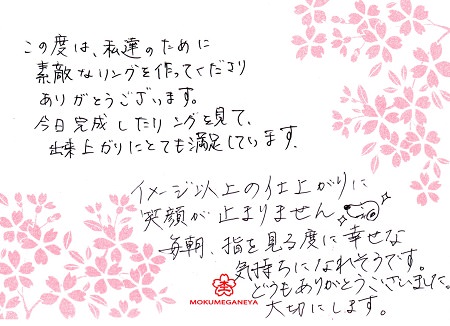 この度は、私達のために
素敵なリングを作ってくださり
ありがとうございます。
今日完成したリングを見て、
出来上がりにとても満足しています.
イメージ以上の仕上がりに
笑顔が止まりません
毎朝、指を見る度に幸せな
気持ちになれそうです。
どうもありがとうございました。
大切にします。
MOKUMEGANEYA